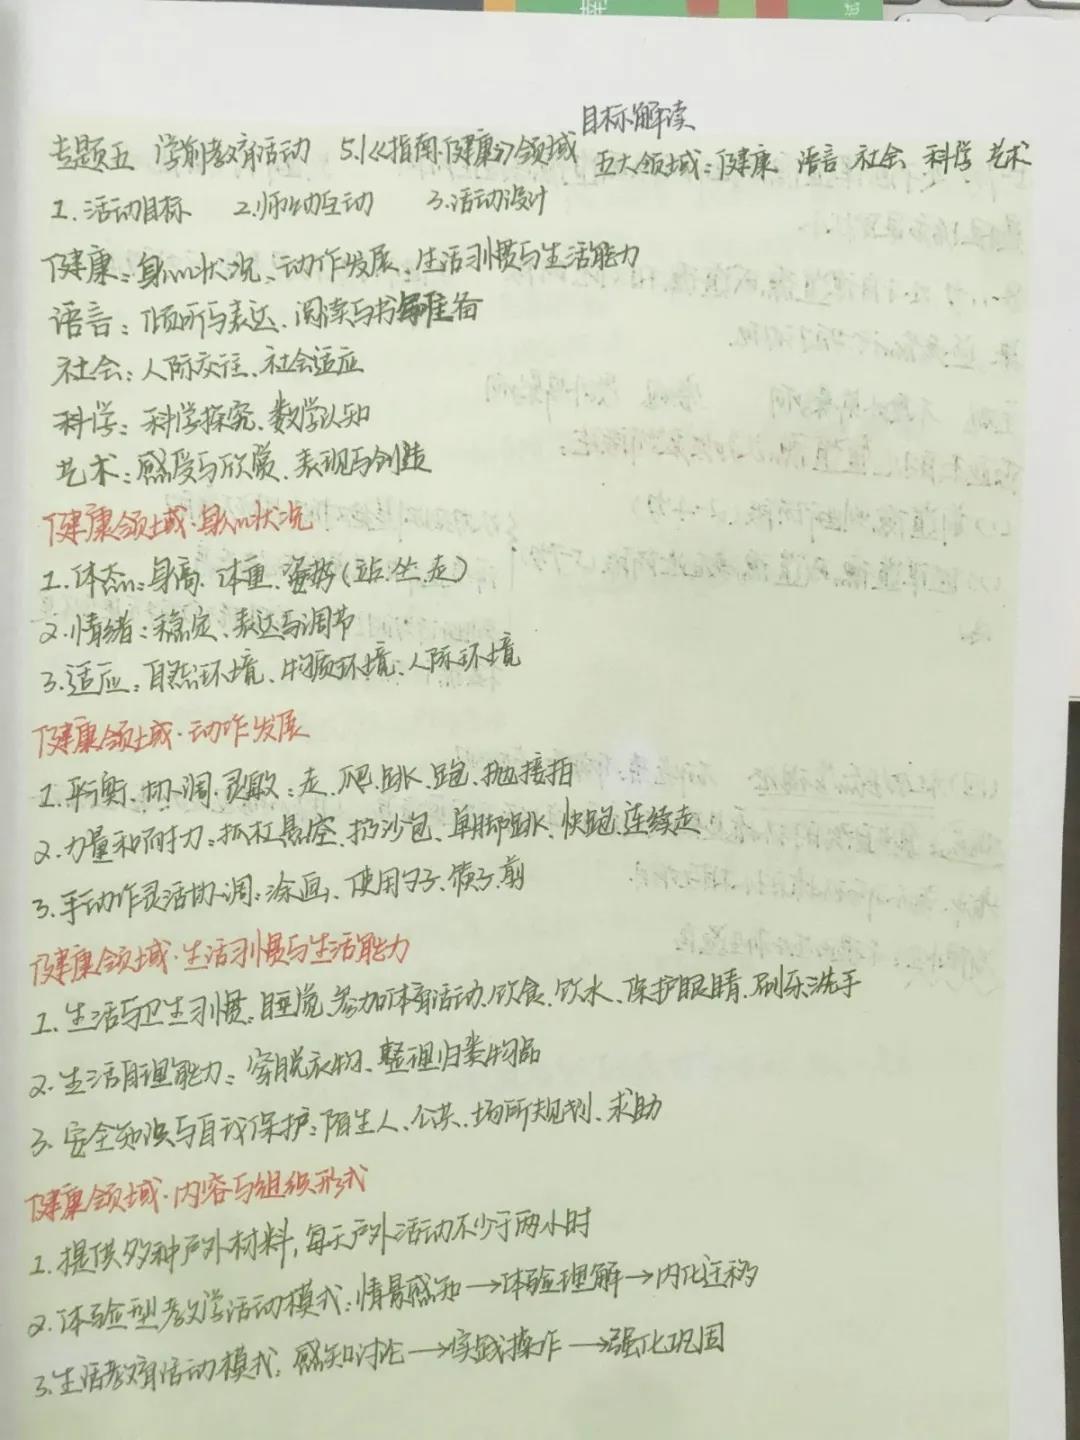 目标解读
专题五 学前教育活动 5.1《指南·健康》领域 五大领域：健康 语言 社会 科学 艺术
1.活动目标 2.师幼互动 3.活动设计
健康：身心状况、动作发展、生活习惯与生活能力
语言：倾听与表达、阅读与书写准备
社会：人际交往、社会适应
科学：科学探究、数学认知
艺术：感受与欣赏、表现与创造
健康领域·身心状况
1.体态：身高、体重、姿势（站.坐.走）
2.情绪：稳定、表达与调节
3.适应：自然环境、物质环境、人际环境
健康领域·动作发展
1.平衡、协调、灵敏：走、爬、跳、跑、抛接拍
2.力量和耐力：抓杠悬空、扔沙包、单脚跳、快跑、连续走
3.手动作灵活协调：涂画、使用勺子、筷子、剪
健康领域·生活习惯与生活能力
1.生活与卫生习惯：睡觉、参加体育活动、饮食、饮水、保护眼睛、刷牙洗手
2.生活自理能力：穿脱衣物、整理归类物品
3.安全知识与自我保护：陌生人、公共、场所规划、求助
健康领域·内容与组织形式
1.提供多种户外材料，每天户外活动不少于两小时
2.体验型教学活动模式：情景感知→体验理解→内化迁移
3.生活教育活动模式：感知讨论→实践操作→强化巩固